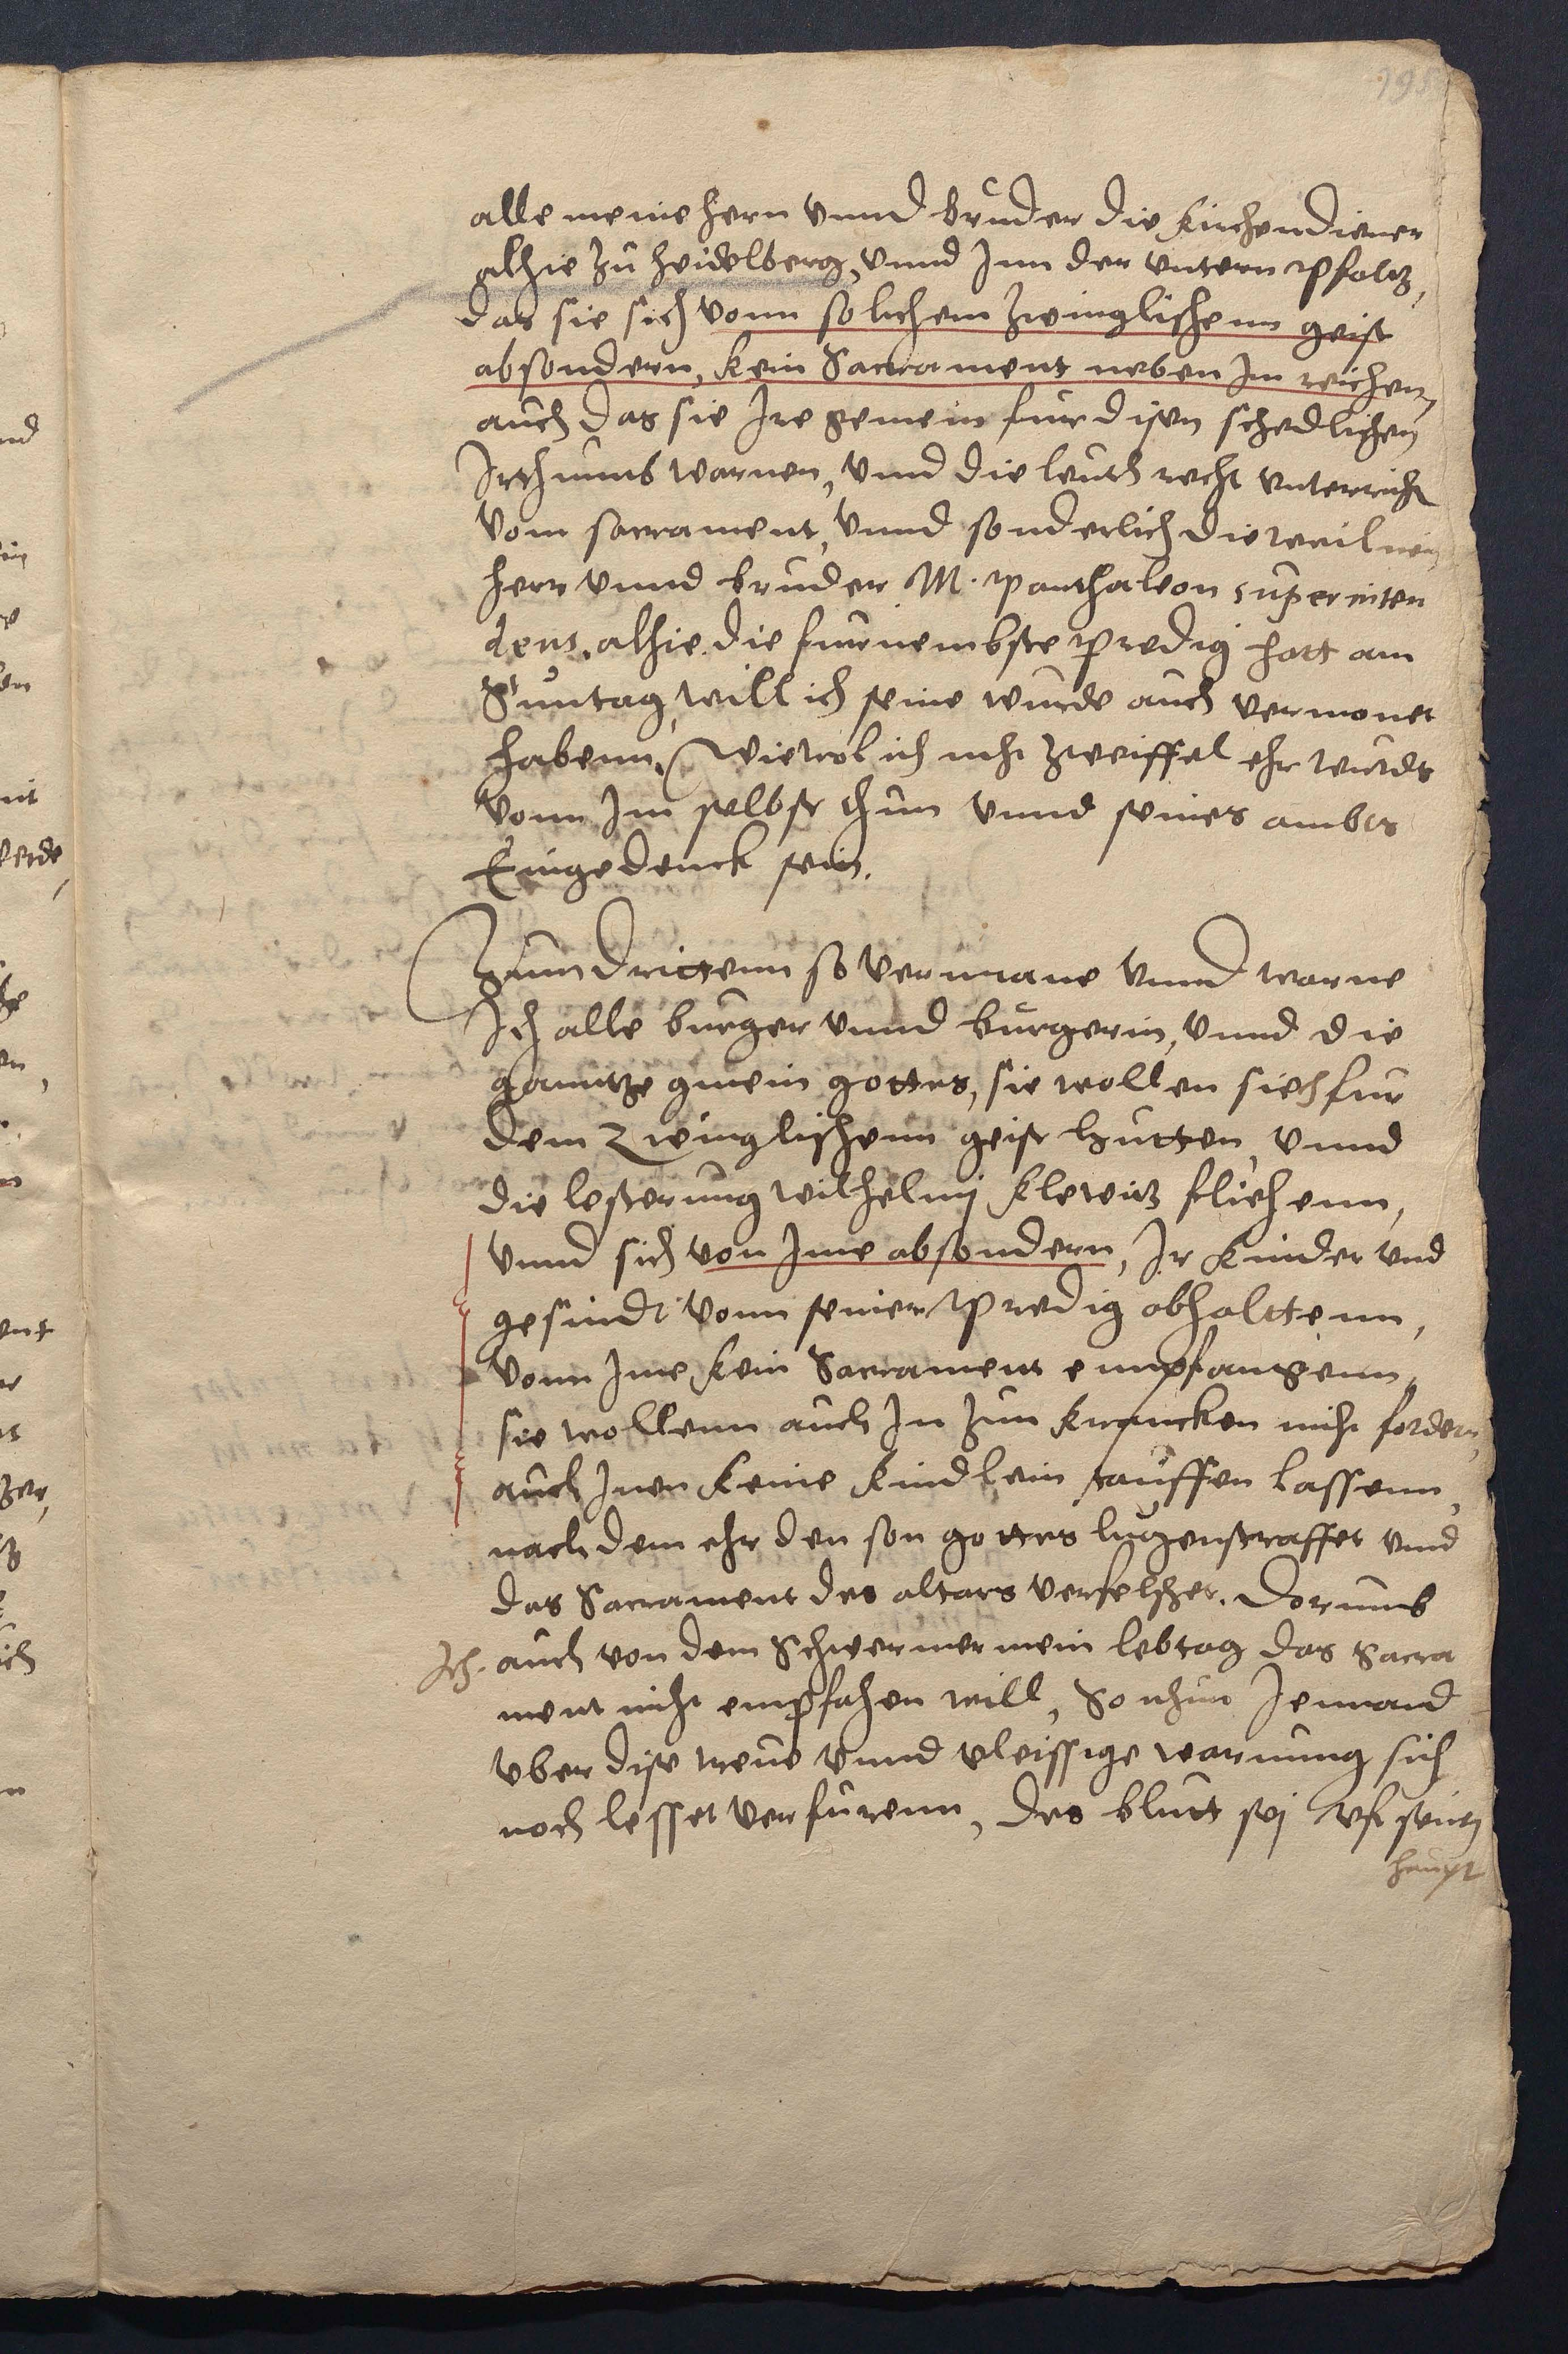 195
alle meine hern vnnd bruder die kirchendiener
alhie zu heidelberg, vnnd Inn der vntern Pfaltz,
das sie sich vonn solichem zwinglischenn geist
absondern, kein Sacrament neben Im reichen,
auch das sie Ire gemein fur disen schedlichen
Irthumb warnen, vnnd die leuth recht vnterricht
vom sacrament, vnnd sonderlich dieweil mein
herr vnnd bruder M. Panthaleon superinten
dens, alhie die furnembste Predig hatt am
Suntag, will ich seine wurde auch vermonet
habenn, Wiewol ich nicht zweiffel ehr wirdts
vonn Im selbst thun vnnd seines ambts
Eingedenck sein.
Zum drittenn so vermane vnnd warne
Ich alle burger vnnd burgerin, vnnd die
ganntze gmein gottes, sie wollen sich fur
dem Zwinglischenn geist hutten, vnnd
die lesterung wilhelmj klewitz fliehenn,
vnnd sich von Ime absondern, Ir kinder vnd
gesindt vonn seiner Predig abhalttenn,
vonn Ime kein Sacrament empfangenn,
sie wollenn auch In zun krancken nicht fordern,
auch Inen keine kindlein tauffen lassenn,
nach dem ehr den son gottes lugenstraffet vnnd
das Sacrament des altars verfelschet. Dorumb
Ich auch von dem Schwermer mein lebtag das Sacra
ment nicht empfahen will, So nhun Jemand
vber dise treue vnnd vleissige warnung sich
noch lesset verfurenn, des blutt sej vff seinem
haupt